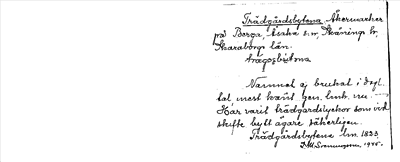 Trädgårdsbytena Åkermarker
på Berga, s:n, Skånings hd
Skaraborgs län.
trägosbittna
Namnet ej brukat i dagl.
tal, mest känt gen. lmh. nu.
Här varit trädgårdslyckor som vid
skifte bytt ägare säkerligen.
Trädgårdsbytena lm. 1833
1945.